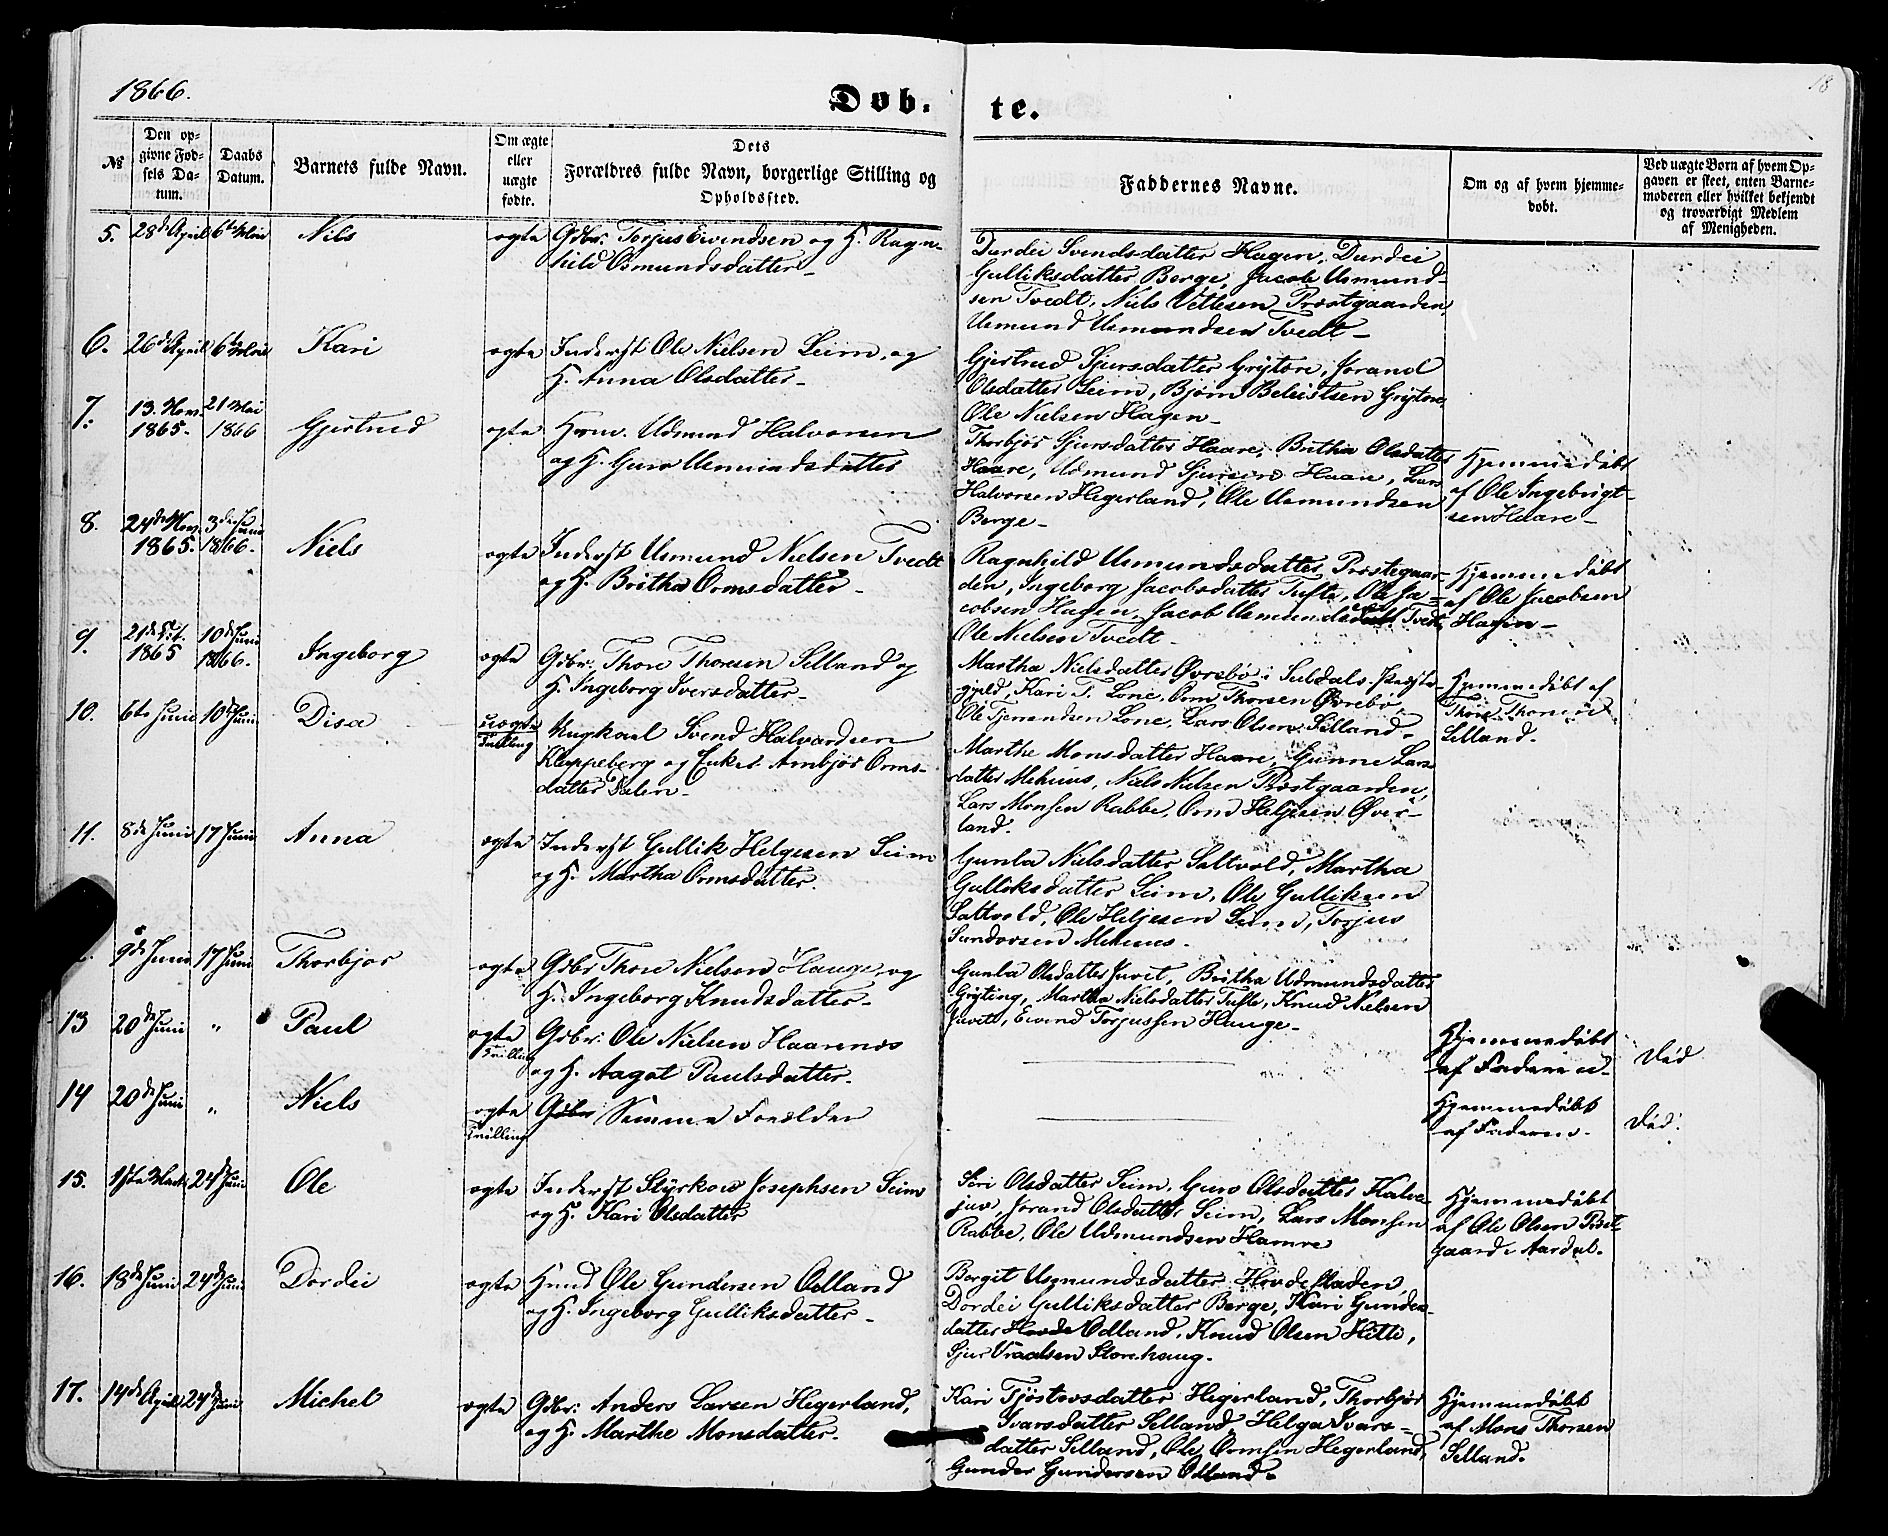 1866.
18
Dob-
te.
№
Den op-
givne Fod-
sels Da-
tum.
Daabs
Datum.
Barnets fulde Navn.
Om ægte
eller
uægte
fodte.
Dets
Forældres fulde Navn, borgerlige Stilling og
Opholdssted.
Faddernes Navne.
Om og af hvem hjemme-
dobt.
Ved uægte Born af hvem Op-
gaven er skeet, enten Barne-
moderen eller hvilket bekjendt
og troværdigt Medlem
af Menigheden.
5.
28de April
6te Mai
Nils
ægte
Gdbr. Torjus Eivindsen og H. Ragn-
hild Osmundsdatter
Durdei Svendsdatter Hagen, Durdei
Gulliksdatter Berge, Jacob Usmund-
sen Tvedt, Niels Vetlesen Præstgaarden
Usmund Usmundsen Tvedt
6.
26de April
6te Mai
Kari
ægte
Inderst Ole Nielsen Seim, og
H. Anna Olsdatter
Gjertrud Sjursdatter Grytøre, Jorand
Olsdatter Seim, Bjørn Grytøre,
Ole Nielsen Hagen
7.
13. Nov.
1865.
21 Mai
1866
Gjertrud
ægte
Udmund Halvorsen
og H. Guro Usmundsdatter
Thorbjør Sjursdatter Haare, Britha Olsdatter
Haare, Udmund Sjursen Haare, Lars
Halvorsen Hegerland, Ole Usmundsen
Berge
Hjemmedøbt
af Ole Ingebrigt-
sen Haare
8.
24de Nov.
1865.
3de Juni
1866.
Niels
ægte
Inderst Usmund Nielsen Tvedt
og H. Britha Ormsdatter
Ragnhild Usmundsdatter Præstegaar-
den, Ingeborg Jacobsdatter Tufte, Ole Ja-
cobsen Hagen, Jacob Tvedt,
Ole Nielsen Tvedt
Hjemmedøbt
af Ole Jacobsen
Hagen
9.
21de
1865
10de Juni
1866.
Ingeborg
ægte
Gdbr. Thore Thoresen Selland og
H. Ingeborg Iversdatter
Martha Nielsdatter Øvrebø i Suldals Præste-
gjeld, Kari T. Lone, Orm Thorsen Øvrebø,
Ole Lone, Lars Olsen Selland
Hjemmedøbt af
Thore Thorsen
Selland.
10.
6te Juni
10de Juni
Disa
uægte
Tvilling
Ungkarl Svend Halvardsen
Kleppeberg og Enke Ambjør Orms-
datter
Marthe Monsdatter Haare, Gunne Lars-
datter Mehuus, Niels Nielsen Præstgaarden,
Lars Monsen Rabbe, Orm Helgesen Øver-
land.
11.
8de Juni
17 Juni
Anna
ægte
Inderst Gullik Helgesen Seim
og H. Martha Ormsdatter.
Gunla Nielsdatter Saltvold, Martha
Gulliksdatter Seim, Ole Gulliksen
Saltvold, Ole Helgesen Seim, Torjus
Sundorsen Mehuus
9de Juni
17 Juni
Thorbjør
ægte
Gdbr Thore Nielsen Hauge, og
H. Ingeborg Knudsdatter
Gunla Olsdatter Juvet, Britha Udmundsdatter
Gryting, Martha Nielsdatter Tufte, Knud Nielsen
Juvet, Eivind Torjussen Hauge
13
20de Juni
"
Paul
ægte
Tvilling
Gdbr. Ole Nielsen Haarenes
og H. Aagot Paulsdatter.
Hjemmedøbt
af Faderen
Død
14
20de Juni
"
Niels
ægte
Tvilling
Gdbr Samme Forælder
Hjemmedøbt
af Faderen
Død.
15.
1ste Marts
24de Juni
Ole
ægte
Inderst Styrkor Josephsen Seim
og H. Kari Olsdatter
Siri Olsdatter Seim, Guro Olsdatter Kalve-
juv, Jorand Olsdatter Seim, Lars Monsen
Rabbe, Ole Udmundsen Hamre
Hjemmedøbt
af Ole Olsen
gaard i Aardal.
16.
18de Juni
24de Juni
Dordei
ægte
Hmd Ole Gundersen Odland
og H. Ingeborg Gulliksdatter
Bergit Usmundsdatter
Dordei Gulliksdatter Berge, Kari Gunders-
datter Odland, Knud Olsen
Sjur Vraalsen Storehaug.
17.
14de April
24de Juni
Michel
ægte
Gdbr: Anders Larsen Hegerland,
og H. Marthe Monsdatter.
Kari Tjøstovsdatter Hegerland, Thorbjør
Ivarsdatter Selland, Helga Ivars-
datter Selland, Ole Ormsen Hegerland,
Gunder Gundersen Odland
Hjemmedøbt
af Mons Thorsen
Selland.